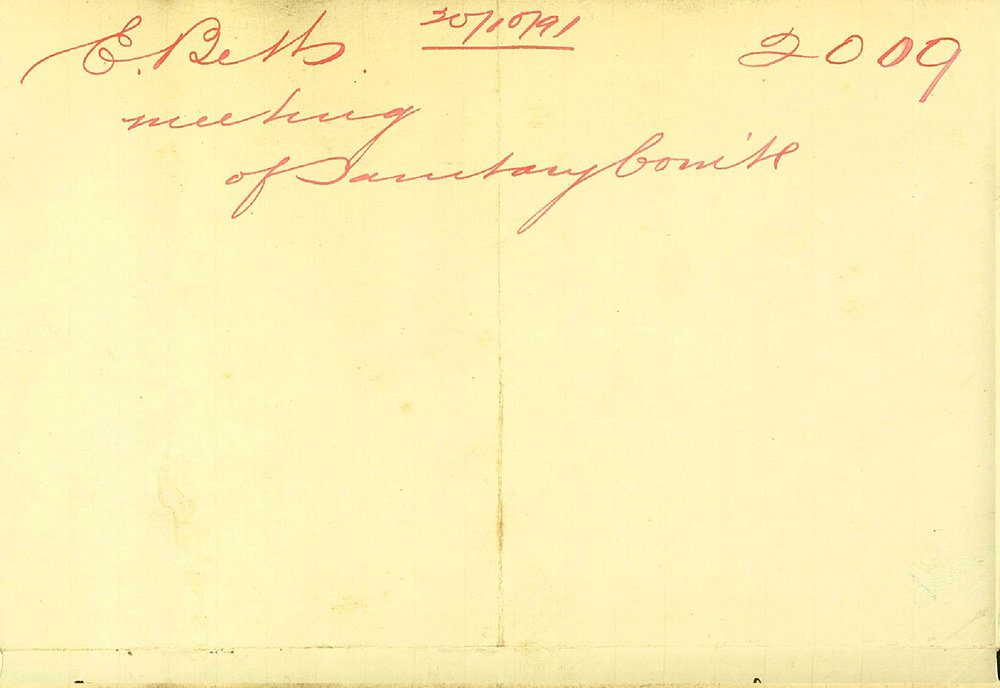 20/10/91
E. Betts 2009
meeting
of Sanitary Comite